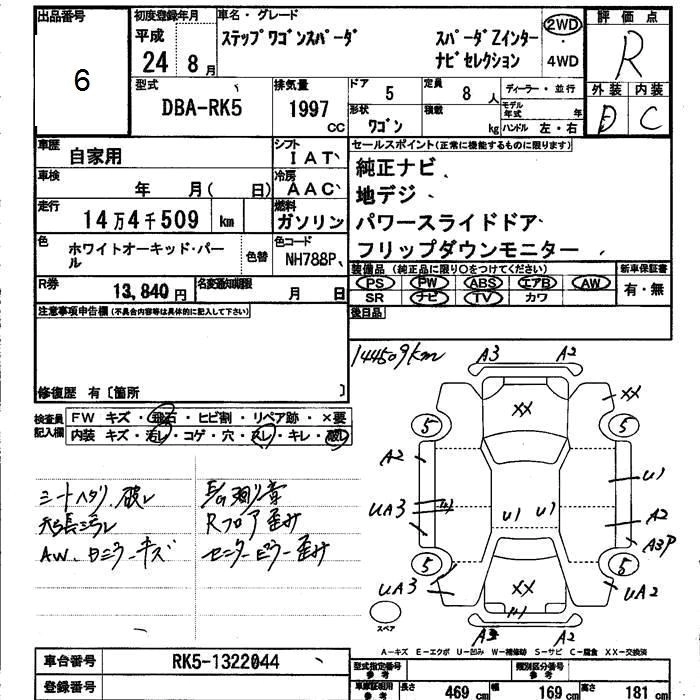 出品番号
6
初度登録年月
平成
24年 8月
車名・グレード
ステップワゴンスパーダ
スパーダZインター
ナビセレクション
2WD
・
4WD
評価点
R
外装 内装
D C
型式
DBA-RK5
排気量
1997
CC
ドア
5
定員
8人
ディーラー・並行
形状
ワゴン
積載
kg
モデル年式 年
ハンドル 左・右
車歴
自家用
シフト
IAT
車検
年 月( 日)
冷房
AAC
走行
14万4千509 km
燃料
ガソリン
色
ホワイトオーキッド・パール
色替
色コード
NH788P
R券
13,840円
名変通知期限
月 日
セールスポイント(正常に機能するものに限ります)
純正ナビ
地デジ
パワースライドドア
フリップダウンモニター
装備品(純正品に限り○をつけてください)
PS PW ABS エアB AW
SR ナビ TV カワ
新車保証書
有・無
後日品
注意事項申告欄(不具合内容等は具体的に記入して下さい)
修復歴 有〔箇所 〕
検査員記入欄
FW キズ・飛石・ヒビ割・リペア跡・×要
内装 キズ・汚レ・コゲ・穴・スレ・キレ・破レ
シートヘタリ、破レ
天張汚レ
AW、日ミラーキズ
Rフロア歪み
センターピラー歪み
144509km
A3 A2
XX
XX
5 5
A2
U1
UA3
U1 U1
A2
A3P
5 5
UA3
XX
UA2
A2
スペア
A-キズ E-エクボ U-凹み W-補修跡 S-サビ C-腐食 XX-交換済
車台番号
RK5-1322044
登録番号
型式指定番号
参考
類別区分番号
参考
車庫証明用
参考
長さ 469 cm
幅 169 cm
高さ 181 cm